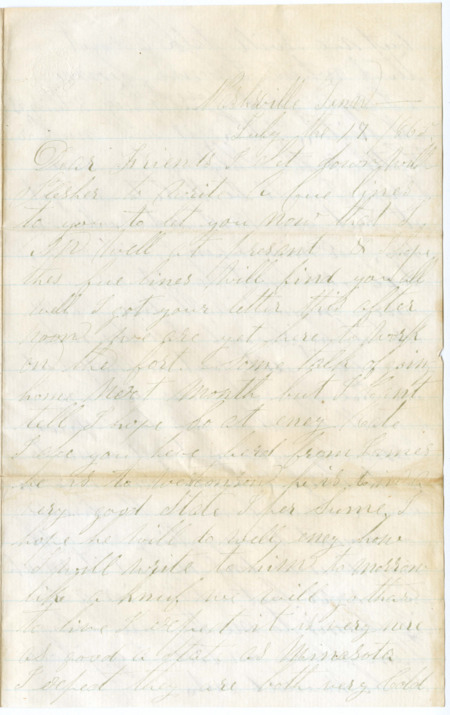 Nashville Tenn
July the 17 186
Dear Friends I Set down with
plesher to write a fue lines
to you to let you now that I
am well at present & hope
this fue lines Will find you all
well I got your letter this after
noon we are yet here to work
on the fort. Some talk of
home next month but I cant
tell I hope so at eney rate
I see you have heard from
he is to Wisconsin
very good State I
hope he will do well eney how
I will write to him to morrow
we will
he live I expect it is very nere
as good a State as Minesota
I expect they are both very Cold